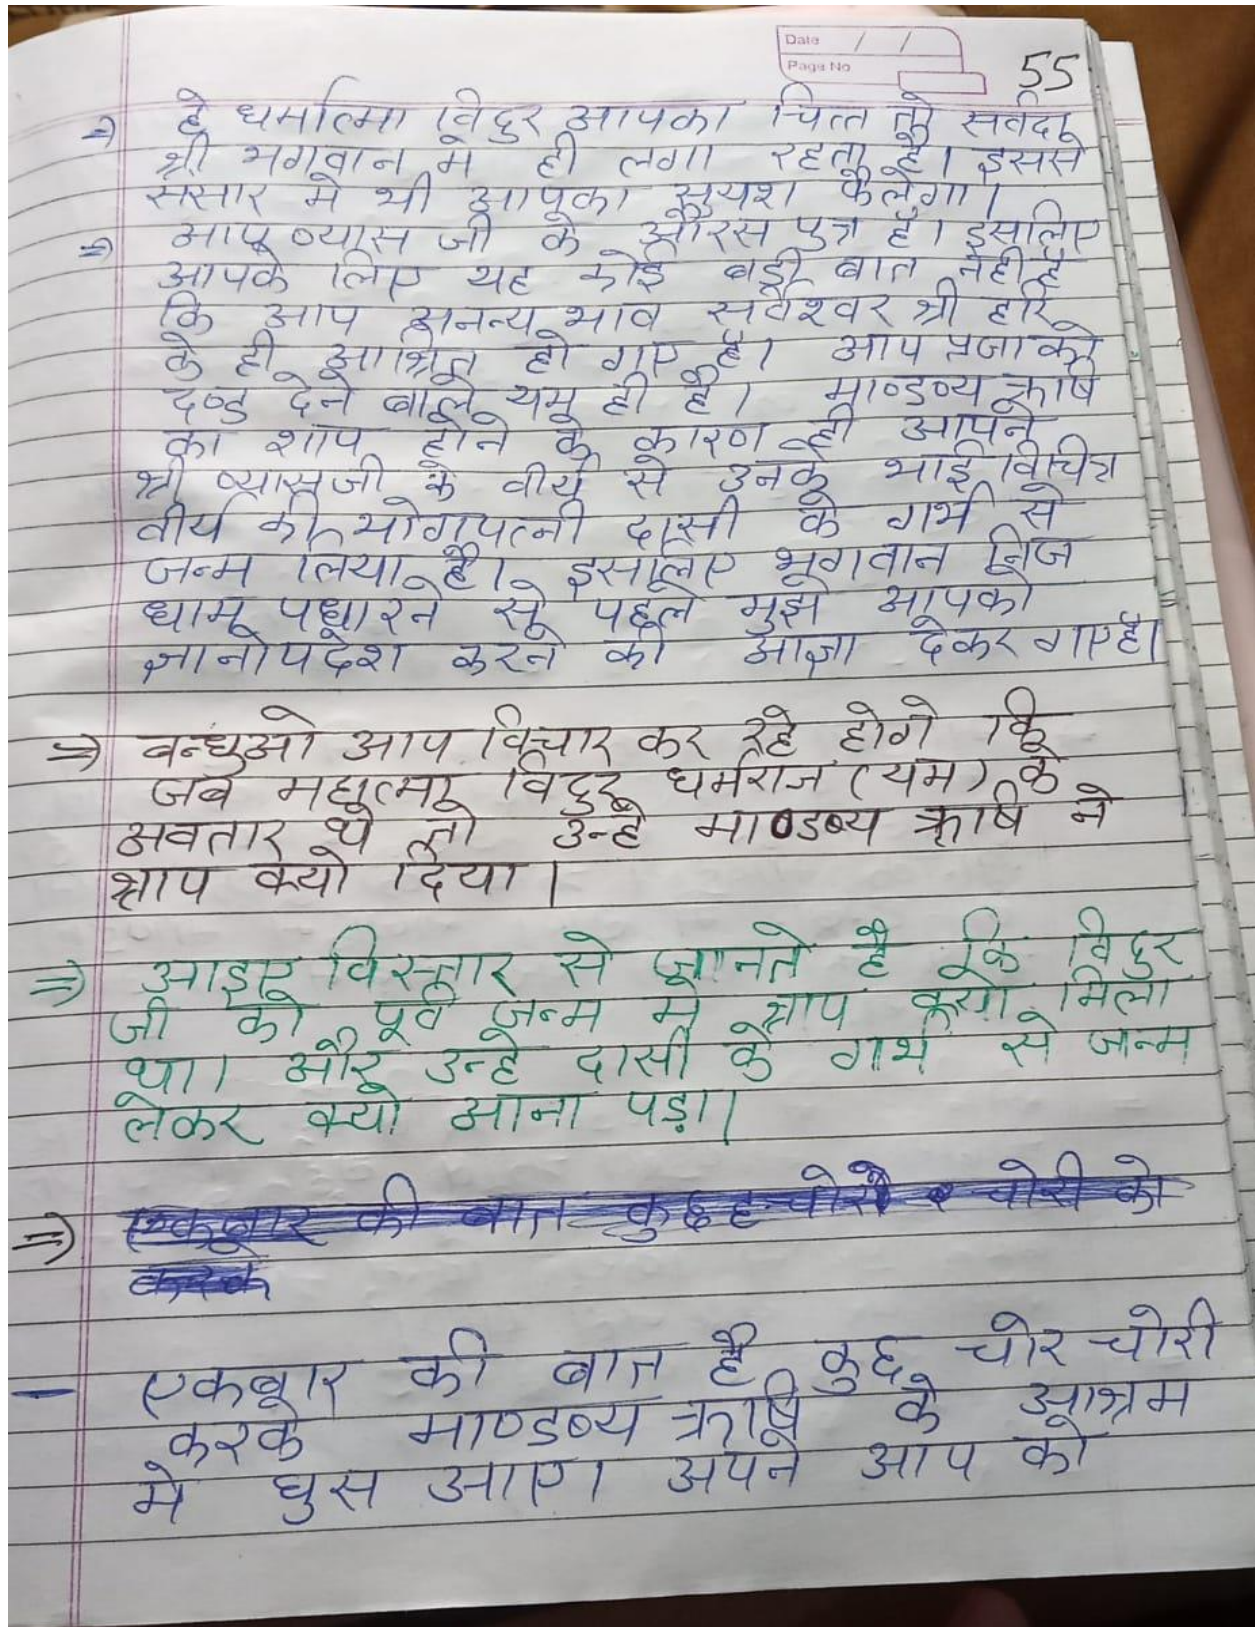 Date / /
Page No
55
⇒ हे धर्मात्मा विदुर आपका चित्त तो सर्वदा
श्री भगवान मे ही लगा रहता है। इससे
संसार मे भी आपका सुयश फैलेगा।
⇒ आप व्यास जी के औरस पुत्र है। इसलिए
आपके लिए यह कोई बड़ी बात नही है
कि आप अनन्य भाव सर्वेश्वर श्री हरि
के ही आश्रित हो गए है। आप प्रजा को
दण्ड देने बाले यम ही है। माण्डव्य ऋषि
का शाप होने के कारण ही आपने
श्री व्यासजी के वीर्य से उनके भाई विचित्र
वीर्य की भोगपत्नी दासी के गर्भ से
जन्म लिया है। इसलिए भगवान निज
धाम पधारने से पहले मुझे आपको
ज्ञानोपदेश करने की आज्ञा देकर गए है।
⇒ बन्धुओ आप विचार कर रहे होगे कि
जब महात्मा विदुर धर्मराज (यम) के
अवतार थे तो उन्हे माण्डब्य ऋषि ने
श्राप क्यो दिया।
⇒ आइए विस्तार से जानते है कि विदुर
जी को पूर्व जन्म मे श्राप क्यो मिला
था। और उन्हे दासी के गर्भ से जन्म
लेकर क्यो आना पड़ा।
⇒ एकबार की बात कुछ चोरी को
करके
– एकबार की बात है कुछ चोर चोरी
करके माण्डब्य ऋषि के आश्रम
मे घुस आए। अपने आप को